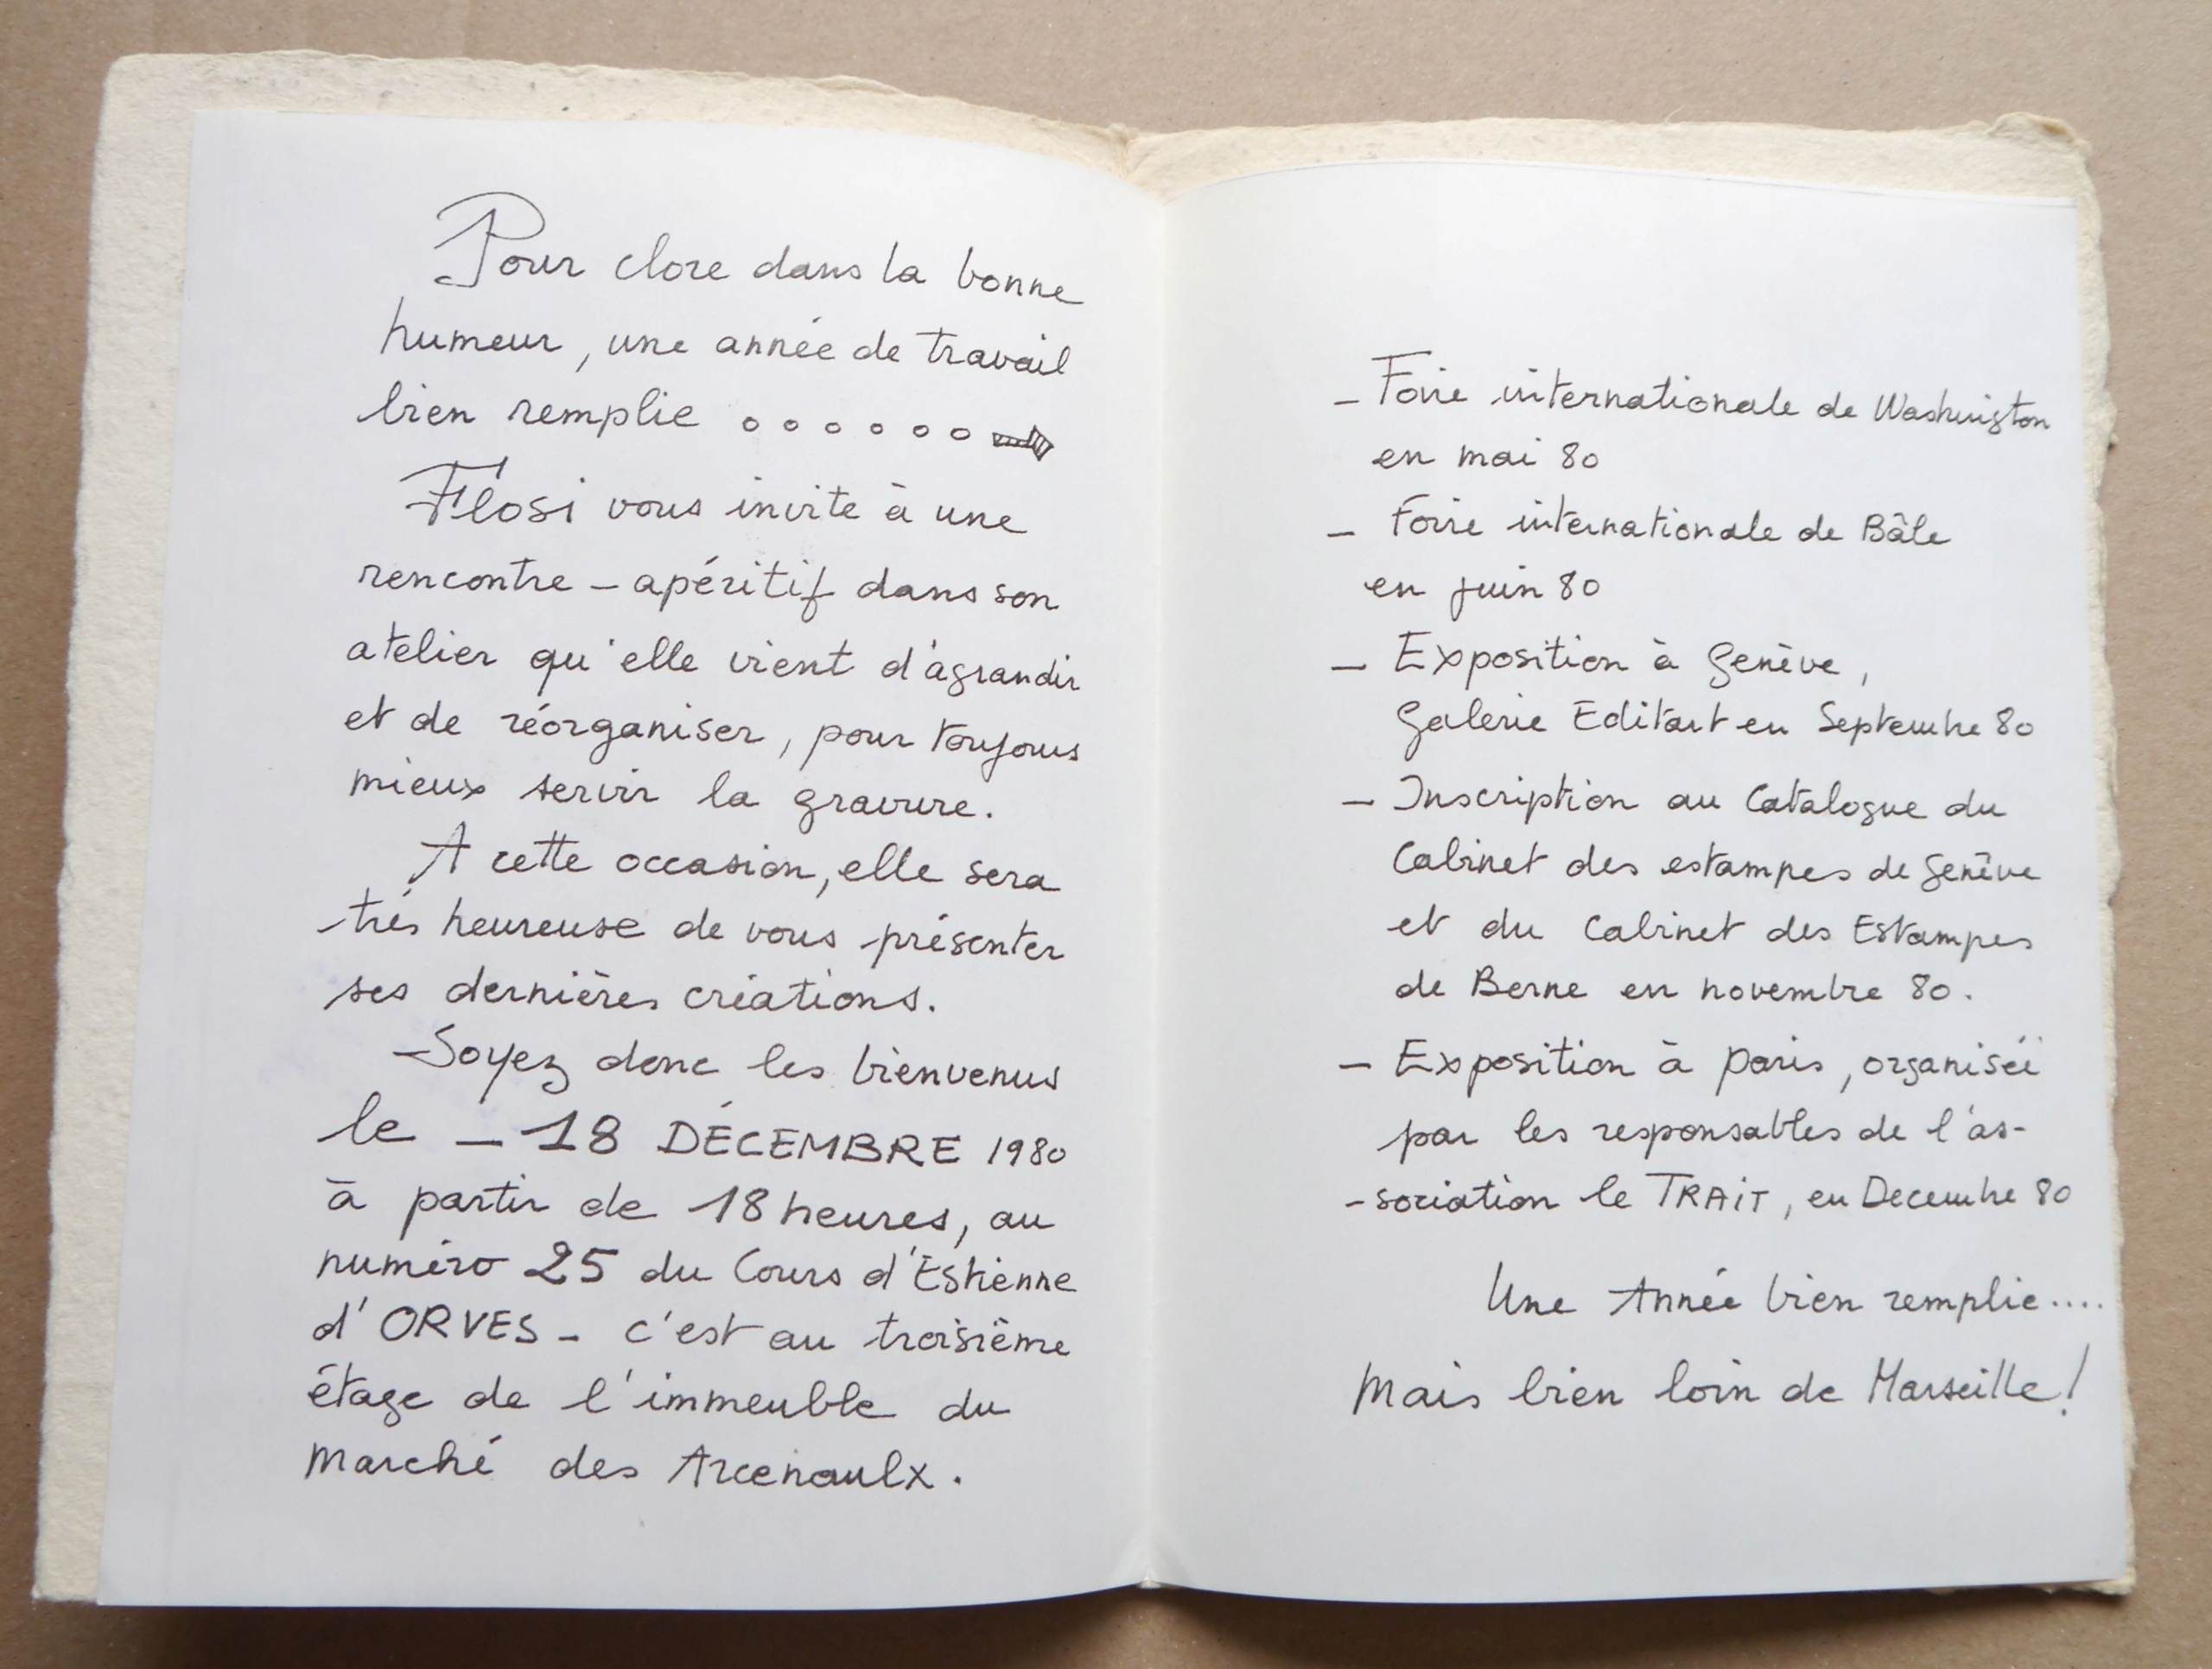 Pour clore dans la bonne
humeur, une année de travail
bien remplie ° ° ° ° ° °
Flosi vous invite à une
rencontre - apéritif dans son
atelier qu'elle vient d'agrandir
et de réorganiser, pour toujours
mieux servir la gravure.
A cette occasion, elle sera
très heureuse de vous présenter
ses dernières créations.
Soyez donc les bienvenus
le - 18 DÉCEMBRE 1980
à partir de 18 heures, au
numéro 25 du Cours d'Estienne
d'ORVES - c'est au troisième
étage de l'immeuble du
Marché des Arcenaulx.
- Foire internationale de Washington
en mai 80
- Foire internationale de Bâle
en juin 80
- Exposition à Genève,
Galerie Editart en Septembre 80
- Inscription au Catalogue du
Cabinet des estampes de Genève
et du Cabinet des Estampes
de Berne en novembre 80.
- Exposition à Paris, organisée
par les responsables de l'as-
-sociation le TRAiT, en Decembre 80
Une Année bien remplie....
Mais bien loin de Marseille!